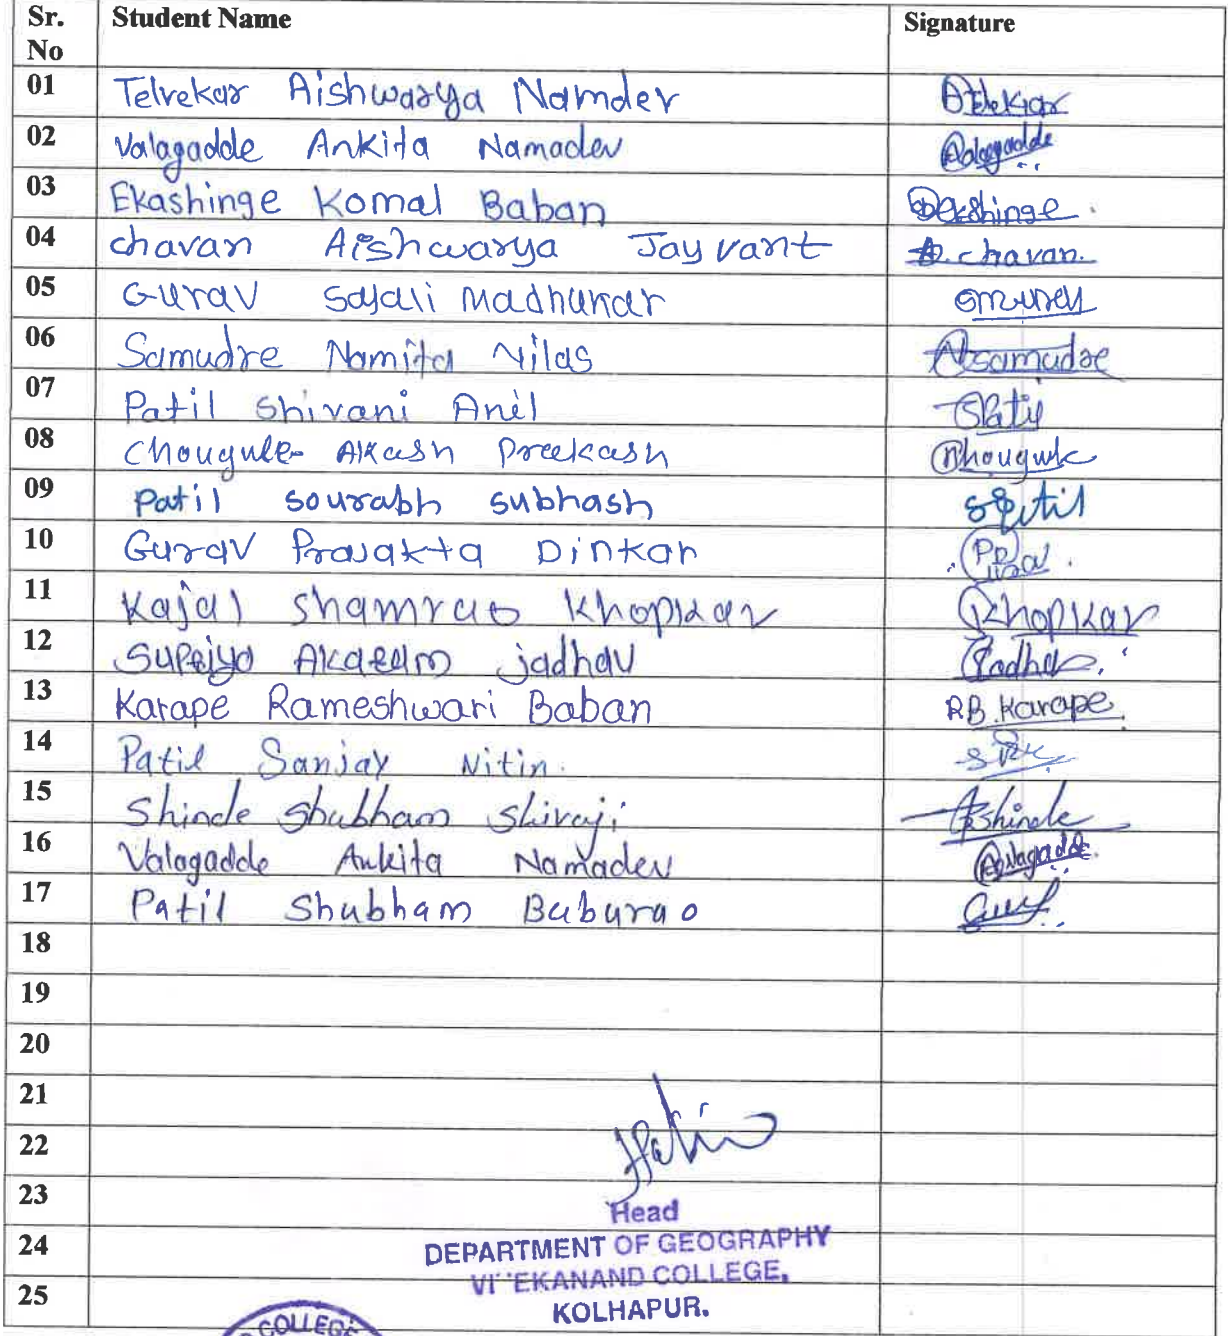 Sr. No Student Name Signature
01 Telvekar Aishwarya Namdev
02 Valagadde Ankita Namadev
03 Ekashinge Komal Baban Ekashinge.
04 chavan Aishwarya Jayvant A. chavan.
05 Gurav Sajali Madhukar
06 Samudre Namita Vilas Nsamudre
07 Patil Shivani Anil SPatil
08 Chougule Akash Prakash Chougule
09 Patil sourabh subhash spatil
10 Gurav Prajakta Dinkar
11 Kajal Shamrao Khopkar Khopkar
12 Supriya Akaram jadhav Jadhav.
13 Karape Rameshwari Baban RB.Karape.
14 Patil Sanjay Nitin.
15 Shinde Shubham Shivaji Shinde
16 Valagadde Ankita Namadev
17 Patil Shubham Baburao
18
19
20
21
22
23
Head
24
DEPARTMENT OF GEOGRAPHY
VI EKANAND COLLEGE,
25
KOLHAPUR.
COLLEGE